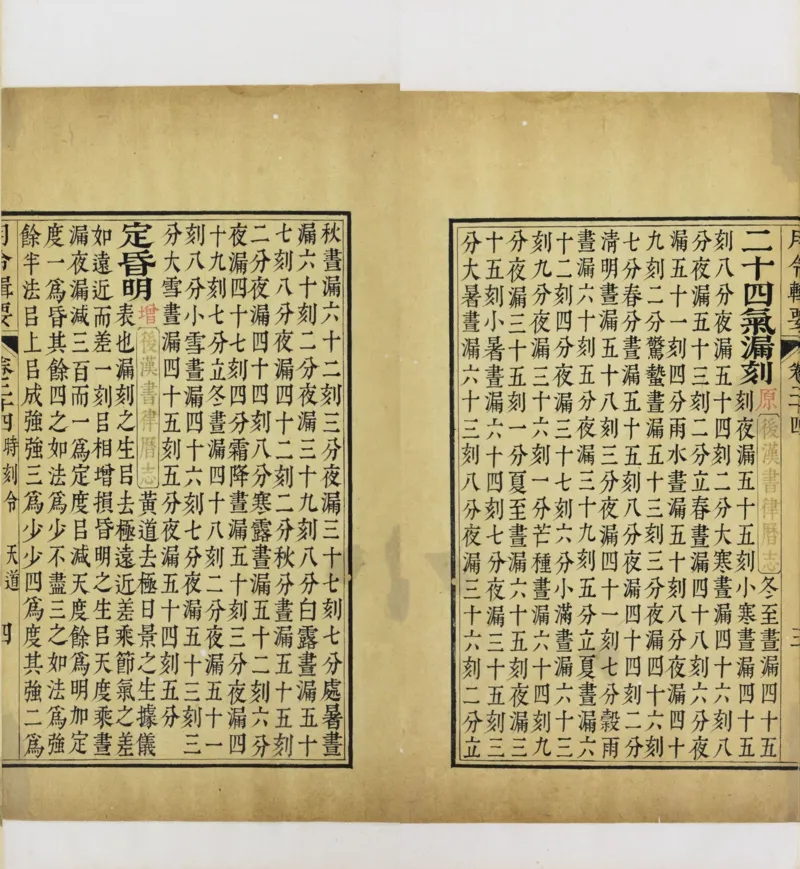 月令輯要 卷二十四 三
二十四氣漏刻 原 後漢書律曆志 冬至晝漏四十五
刻夜漏五十五刻小寒晝漏四十五
刻八分夜漏五十四刻二分大寒晝漏四十六刻八
分夜漏五十三刻二分立春晝漏四十八刻六分夜
漏五十一刻四分雨水晝漏五十刻八分夜漏四十
九刻二分驚蟄晝漏五十三刻三分夜漏四十六刻
七分春分晝漏五十五刻八分夜漏四十四刻二分
淸明晝漏五十八刻三分夜漏四十一刻七分穀雨
晝漏六十刻五分夜漏三十九刻五分立夏晝漏六
十二刻四分夜漏三十七刻六分小滿晝漏六十三
刻九分夜漏三十六刻一分芒種晝漏六十四刻九
分夜漏三十五刻一分夏至晝漏六十五刻夜漏三
十五刻小暑晝漏六十四刻七分夜漏三十五刻三
分大暑晝漏六十三刻八分夜漏三十六刻二分立
秋晝漏六十二刻三分夜漏三十七刻七分處暑晝
漏六十刻二分夜漏三十九刻八分白露晝漏五十
七刻八分夜漏四十二刻二分秋分晝漏五十五刻
二分夜漏四十四刻八分寒露晝漏五十二刻六分
夜漏四十七刻四分霜降晝漏五十刻三分夜漏四
十九刻七分立冬晝漏四十八刻二分夜漏五十一
刻八分小雪晝漏四十六刻七分夜漏五十三刻三
分大雪晝漏四十五刻五分夜漏五十四刻五分
定昏明 增 後漢書律曆志 黃道去極日景之生據儀
表也漏刻之生㠯去極遠近差乘節氣之差
如遠近而差一刻㠯相增損昏明之生㠯天度乘晝
漏夜漏減三百而一爲定度㠯減天度餘爲明加定
度一爲昏其餘四之如法爲少不盡三之如法爲强
餘半法㠯上㠯成强强三爲少少四爲度其强二爲
月令輯要 卷二十四 時刻令 天道 四